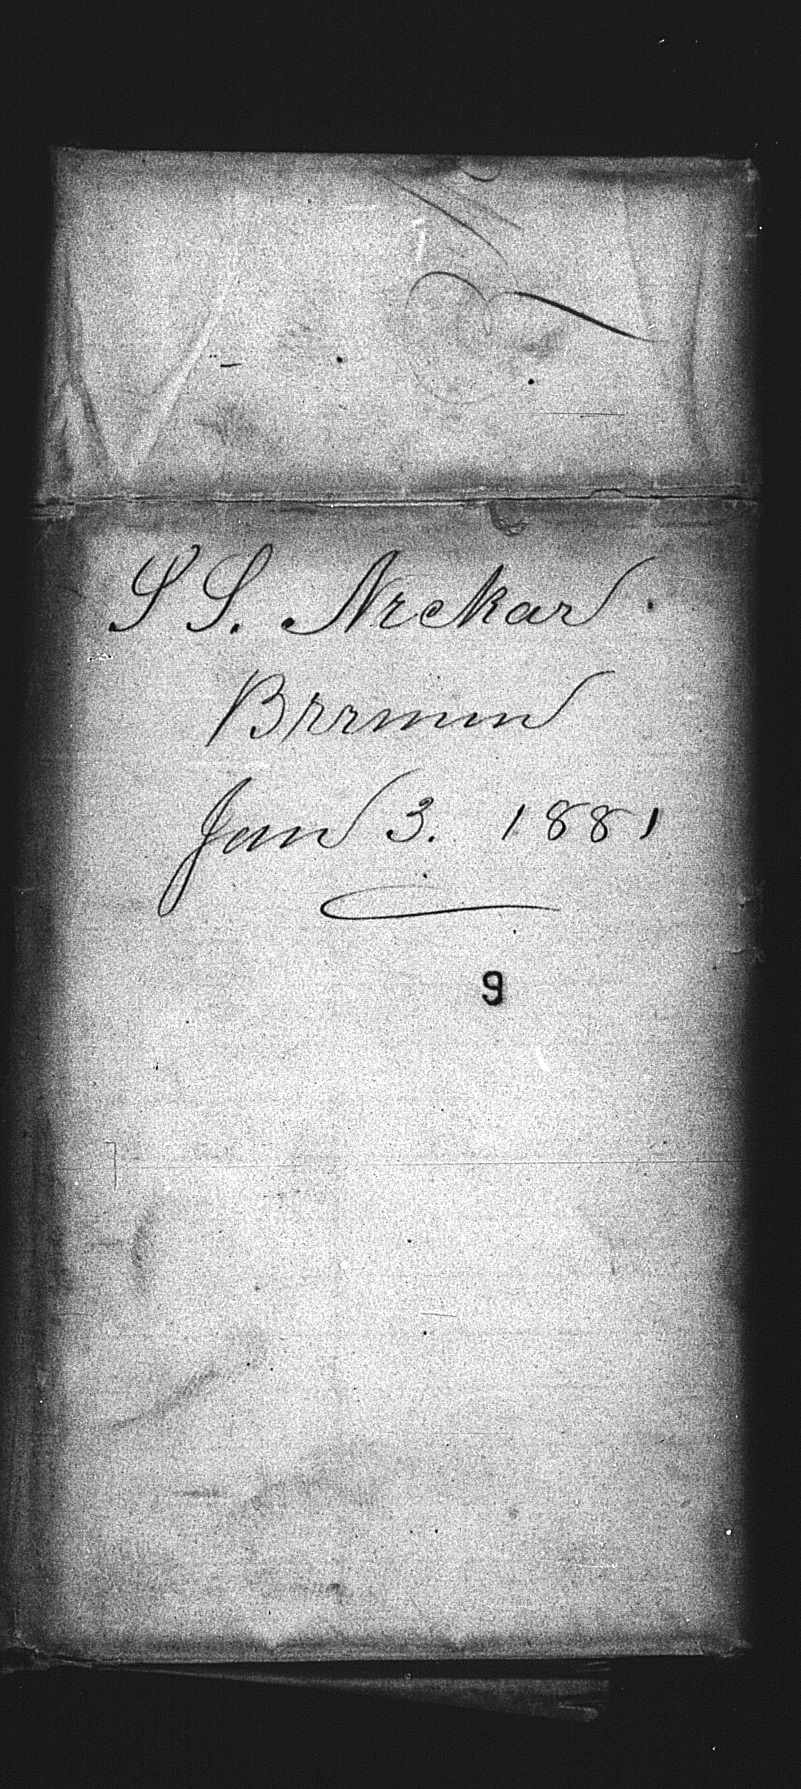 SS. Neckar.
Bremen
Jan 3. 1881
9